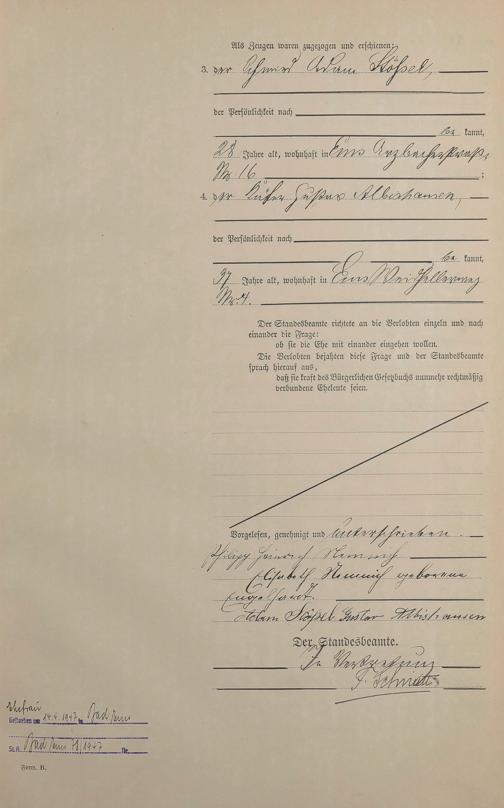 Als Zeugen waren zugezogen und erschienen:
3. der Schmied Adam Stößel,
der Persönlichkeit nach
be kannt,
28 Jahre alt, wohnhaft in Ems Arzbacherstraße
Nr. 16 ;
4. der Küfer Gustav Albishausen,
der Persönlichkeit nach
be kannt,
37 Jahre alt, wohnhaft in Ems Weidhellerweg
Nr. 4.
Der Standesbeamte richtete an die Verlobten einzeln und nach
einander die Frage:
ob sie die Ehe mit einander eingehen wollen.
Die Verlobten bejahten diese Frage und der Standesbeamte
sprach hierauf aus,
daß sie kraft des Bürgerlichen Gesetzbuchs nunmehr rechtmäßig
verbundene Eheleute seien.
Vorgelesen, genehmigt und unterschrieben.
Philipp Heinrich
Elisabeth geborene
Engelhardt.
Adam Stößel Gustav Albishausen
Der Standesbeamte.
In Vertretung
Ehefrau
Gestorben am 14.4.1947 in Bad Ems
St. A. Bad Ems /1947 Nr.
Form. B.